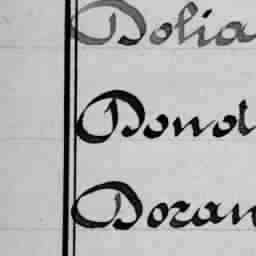 Dolia
Donot
Doran